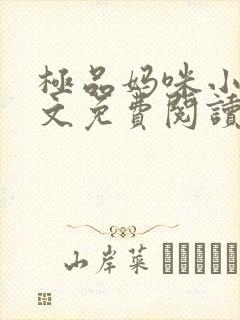 極品妈咪小
文免費閱讀
山岸菜